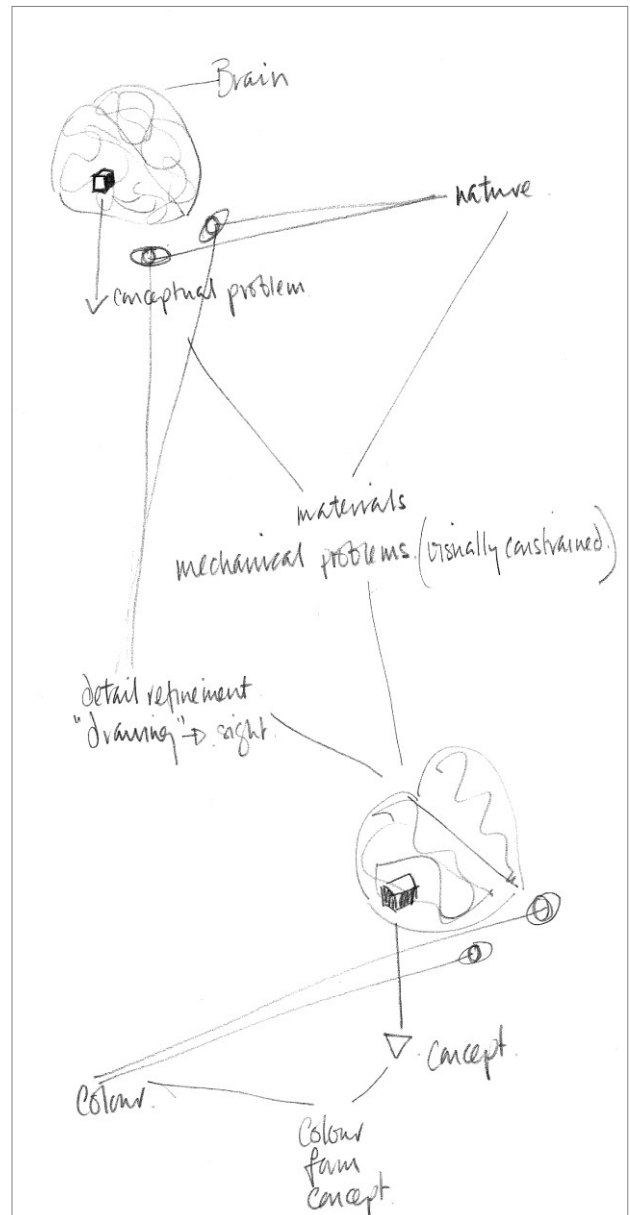 Brain
nature.
conceptual problem
materials
mechanical problems. (visually constrained.)
detail refinement.
"drawing" → sight.
concept.
Colour.
Colour
form
concept.